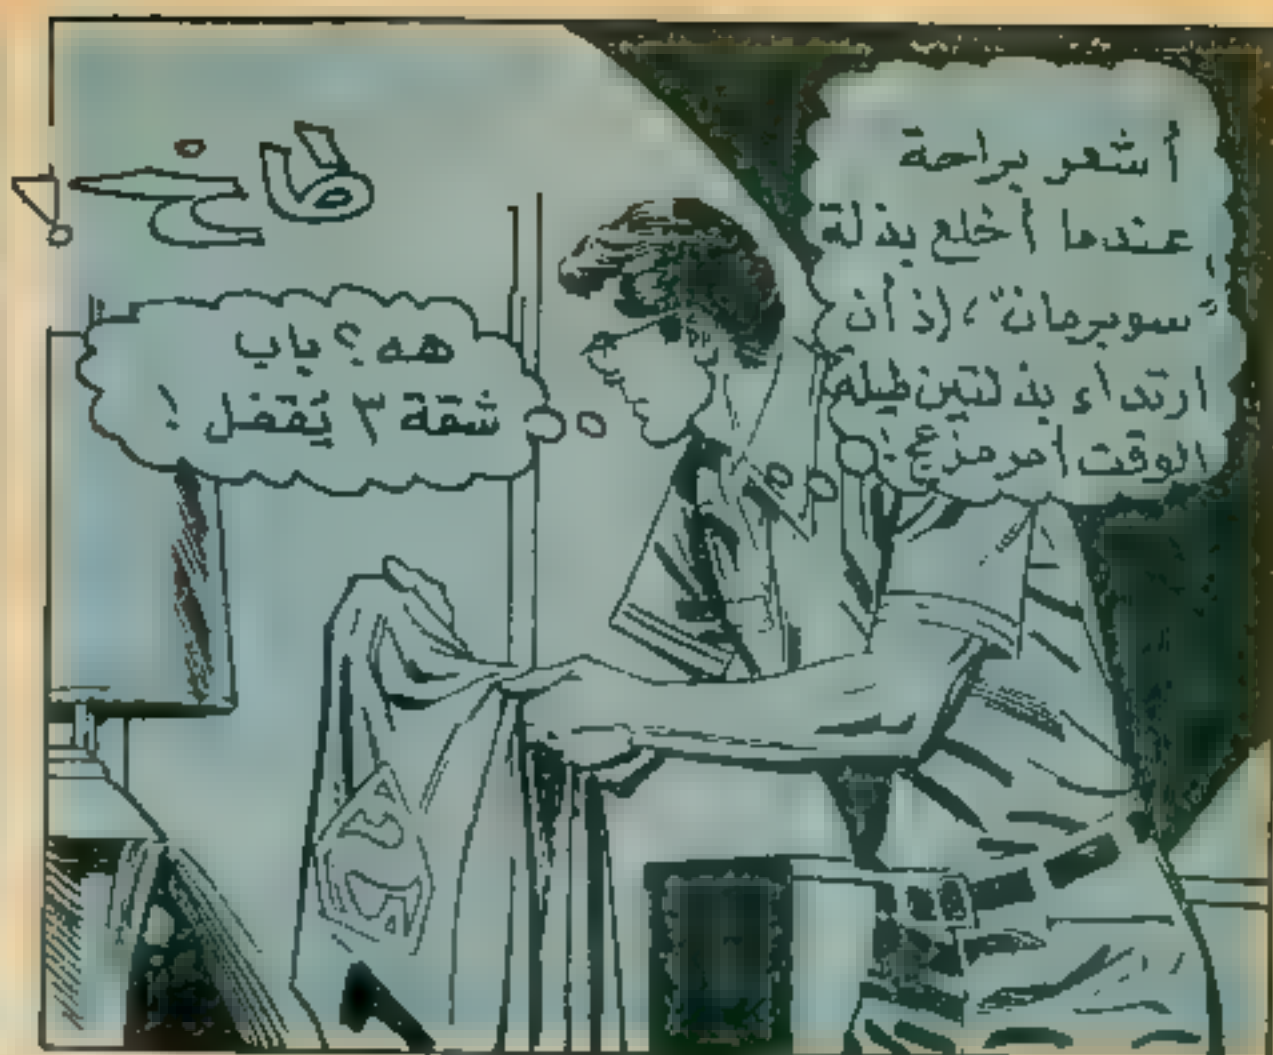 أشعر براحة
عندما أخلع بذلة
"سوبرمان"، إذ أن
ارتداء بذلتين طيلة
الوقت أمر مزعج!
هه؟ باب
شقة ٣ يُقفل!